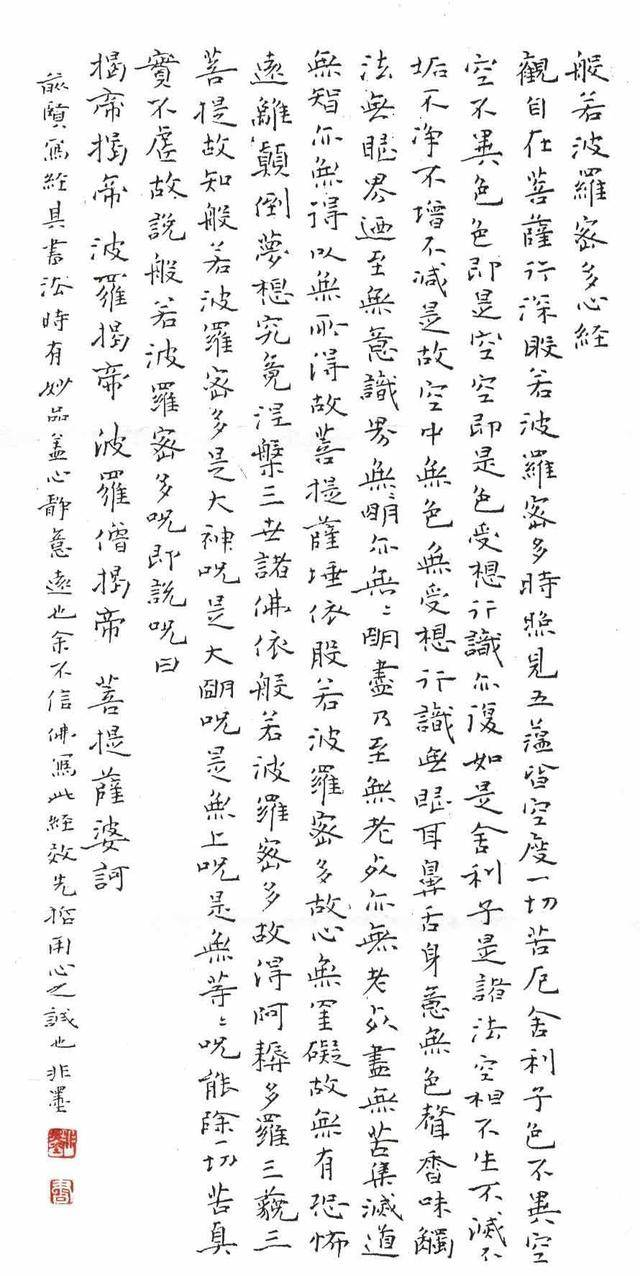 般若波羅密多心經
觀自在菩薩行深般若波羅密多時照見五蘊皆空度一切苦厄舍利子色不異空
空不異色色即是空空即是色受想行識亦復如是舍利子是諸法空相不生不滅不
垢不净不增不減是故空中無色無受想行識無眼耳鼻舌身意無色聲香味觸
法無眼界迺至無意識界無明亦無〻明盡乃至無老死亦無老死盡無苦集滅道
無智亦無得以無所得故菩提薩埵依般若波羅密多故心無罣礙故無有恐怖
遠離顛倒夢想究竟涅槃三世諸佛依般若波羅密多故得阿耨多羅三藐三
菩提故知般若波羅密多是大神呪是大明呪是無上呪是無等〻呪能除一切苦真
實不虛故說般若波羅密多呪即說呪曰
揭帝揭帝 波羅揭帝 波羅僧揭帝 菩提薩婆訶
前賢寫經具書法時有妙品蓋心靜意遠也余不信佛寫此經效先哲用心之誠也非墨